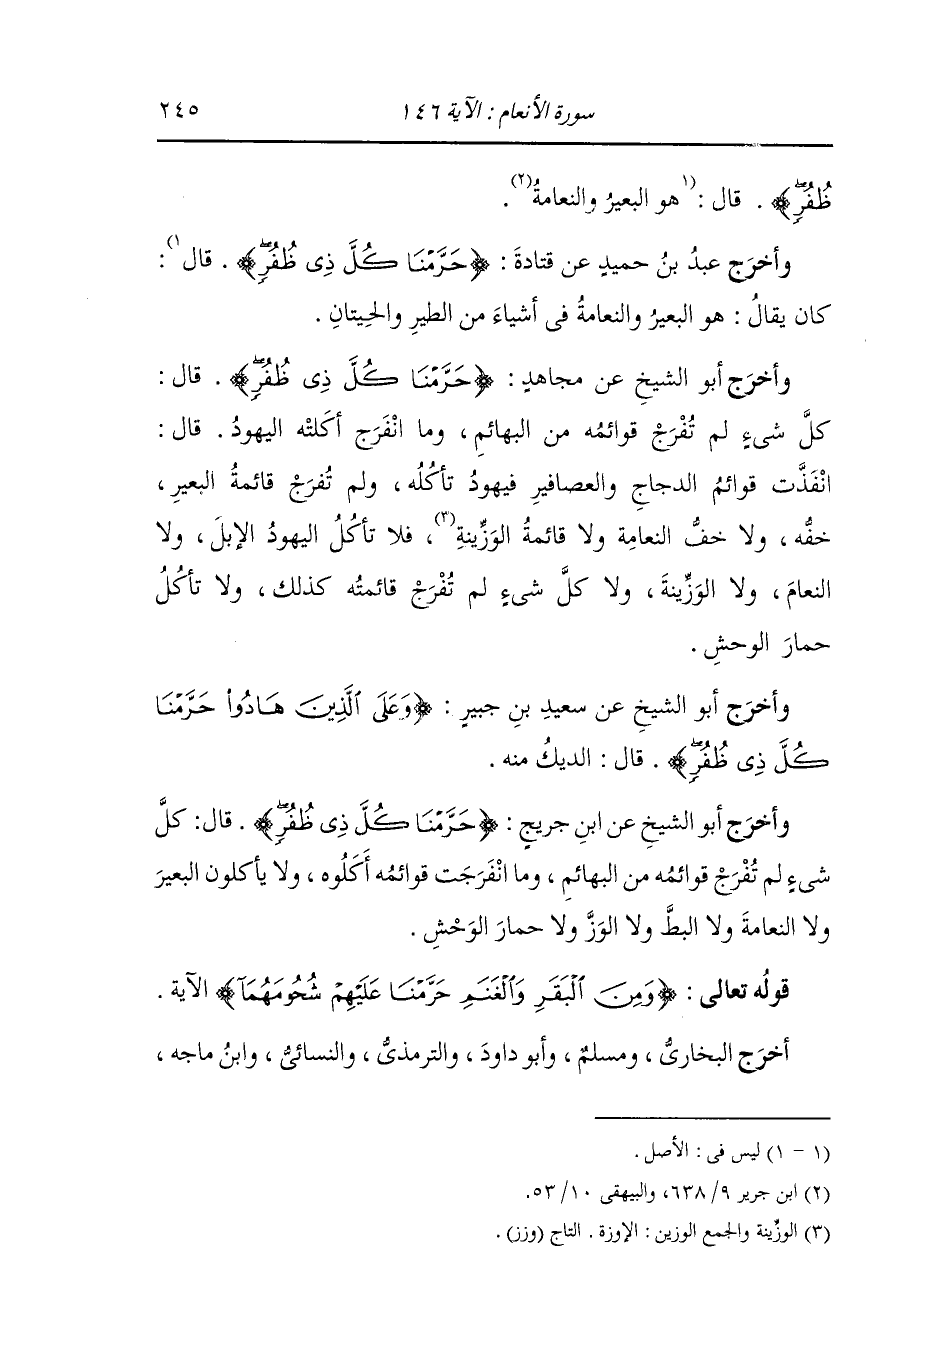 سورة الأنعام : الآية ١٤٦ ٢٤٥
ظُفُرٍ﴾ . قال :(١ هو البعيرُ والنعامةُ(٢) .
وأخرَج عبدُ بنُ حميدٍ عن قتادةَ : ﴿حَرَّمْنَا كُلَّ ذِى ظُفُرٍ﴾ . قال١) :
كان يقالُ : هو البعيرُ والنعامةُ فى أشياءَ من الطيرِ والحِيتانِ .
وأخرَج أبو الشيخِ عن مجاهدٍ : ﴿حَرَّمْنَا كُلَّ ذِى ظُفُرٍ﴾ . قال :
كلَّ شىءٍ لم تُفْرَجْ قوائمُه من البهائمِ ، وما انْفَرَج أكَلتْه اليهودُ . قال :
انْفَذَّت قوائمُ الدجاجِ والعصافيرِ فيهودُ تأكُلُه ، ولم تُفرَجْ قائمةُ البعيرِ ،
خفُّه ، ولا خفُّ النعامِة ولا قائمةُ الوَزِّينةِ(٣) ، فلا تأكُلُ اليهودُ الإبلَ ، ولا
النعامَ ، ولا الوَزِّينةَ ، ولا كلَّ شىءٍ لم تُفْرَجْ قائمتُه كذلك ، ولا تأكُلُ
حمارَ الوحشِ .
وأخرَج أبو الشيخِ عن سعيدِ بنِ جبيرٍ : ﴿وَعَلَى ٱلَّذِينَ هَادُوا۟ حَرَّمْنَا
كُلَّ ذِى ظُفُرٍ﴾ . قال : الديكُ منه .
وأخرَج أبو الشيخِ عن ابنِ جريجٍ : ﴿حَرَّمْنَا كُلَّ ذِى ظُفُرٍ﴾ . قال: كلَّ
شىءٍ لم تُفْرَجْ قوائمُه من البهائمِ ، وما انْفَرَجَت قوائمُه أَكَلُوه ، ولا يأكلون البعيرَ
ولا النعامةَ ولا البطَّ ولا الوَزَّ ولا حمارَ الوَحْشِ .
قولُه تعالى : ﴿وَمِنَ ٱلْبَقَرِ وَٱلْغَنَمِ حَرَّمْنَا عَلَيْهِمْ شُحُومَهُمَآ﴾ الآية .
أخرَج البخارىُّ ، ومسلمٌ ، وأبو داودَ ، والترمذىُّ ، والنسائىُّ ، وابنُ ماجه ،
(١ – ١) ليس فى : الأصل .
(٢) ابن جرير ٩/ ٦٣٨، والبيهقى ١٠/ ٥٣.
(٣) الوزِّينة والجمع الوزين : الإوزة . التاج (وزز) .